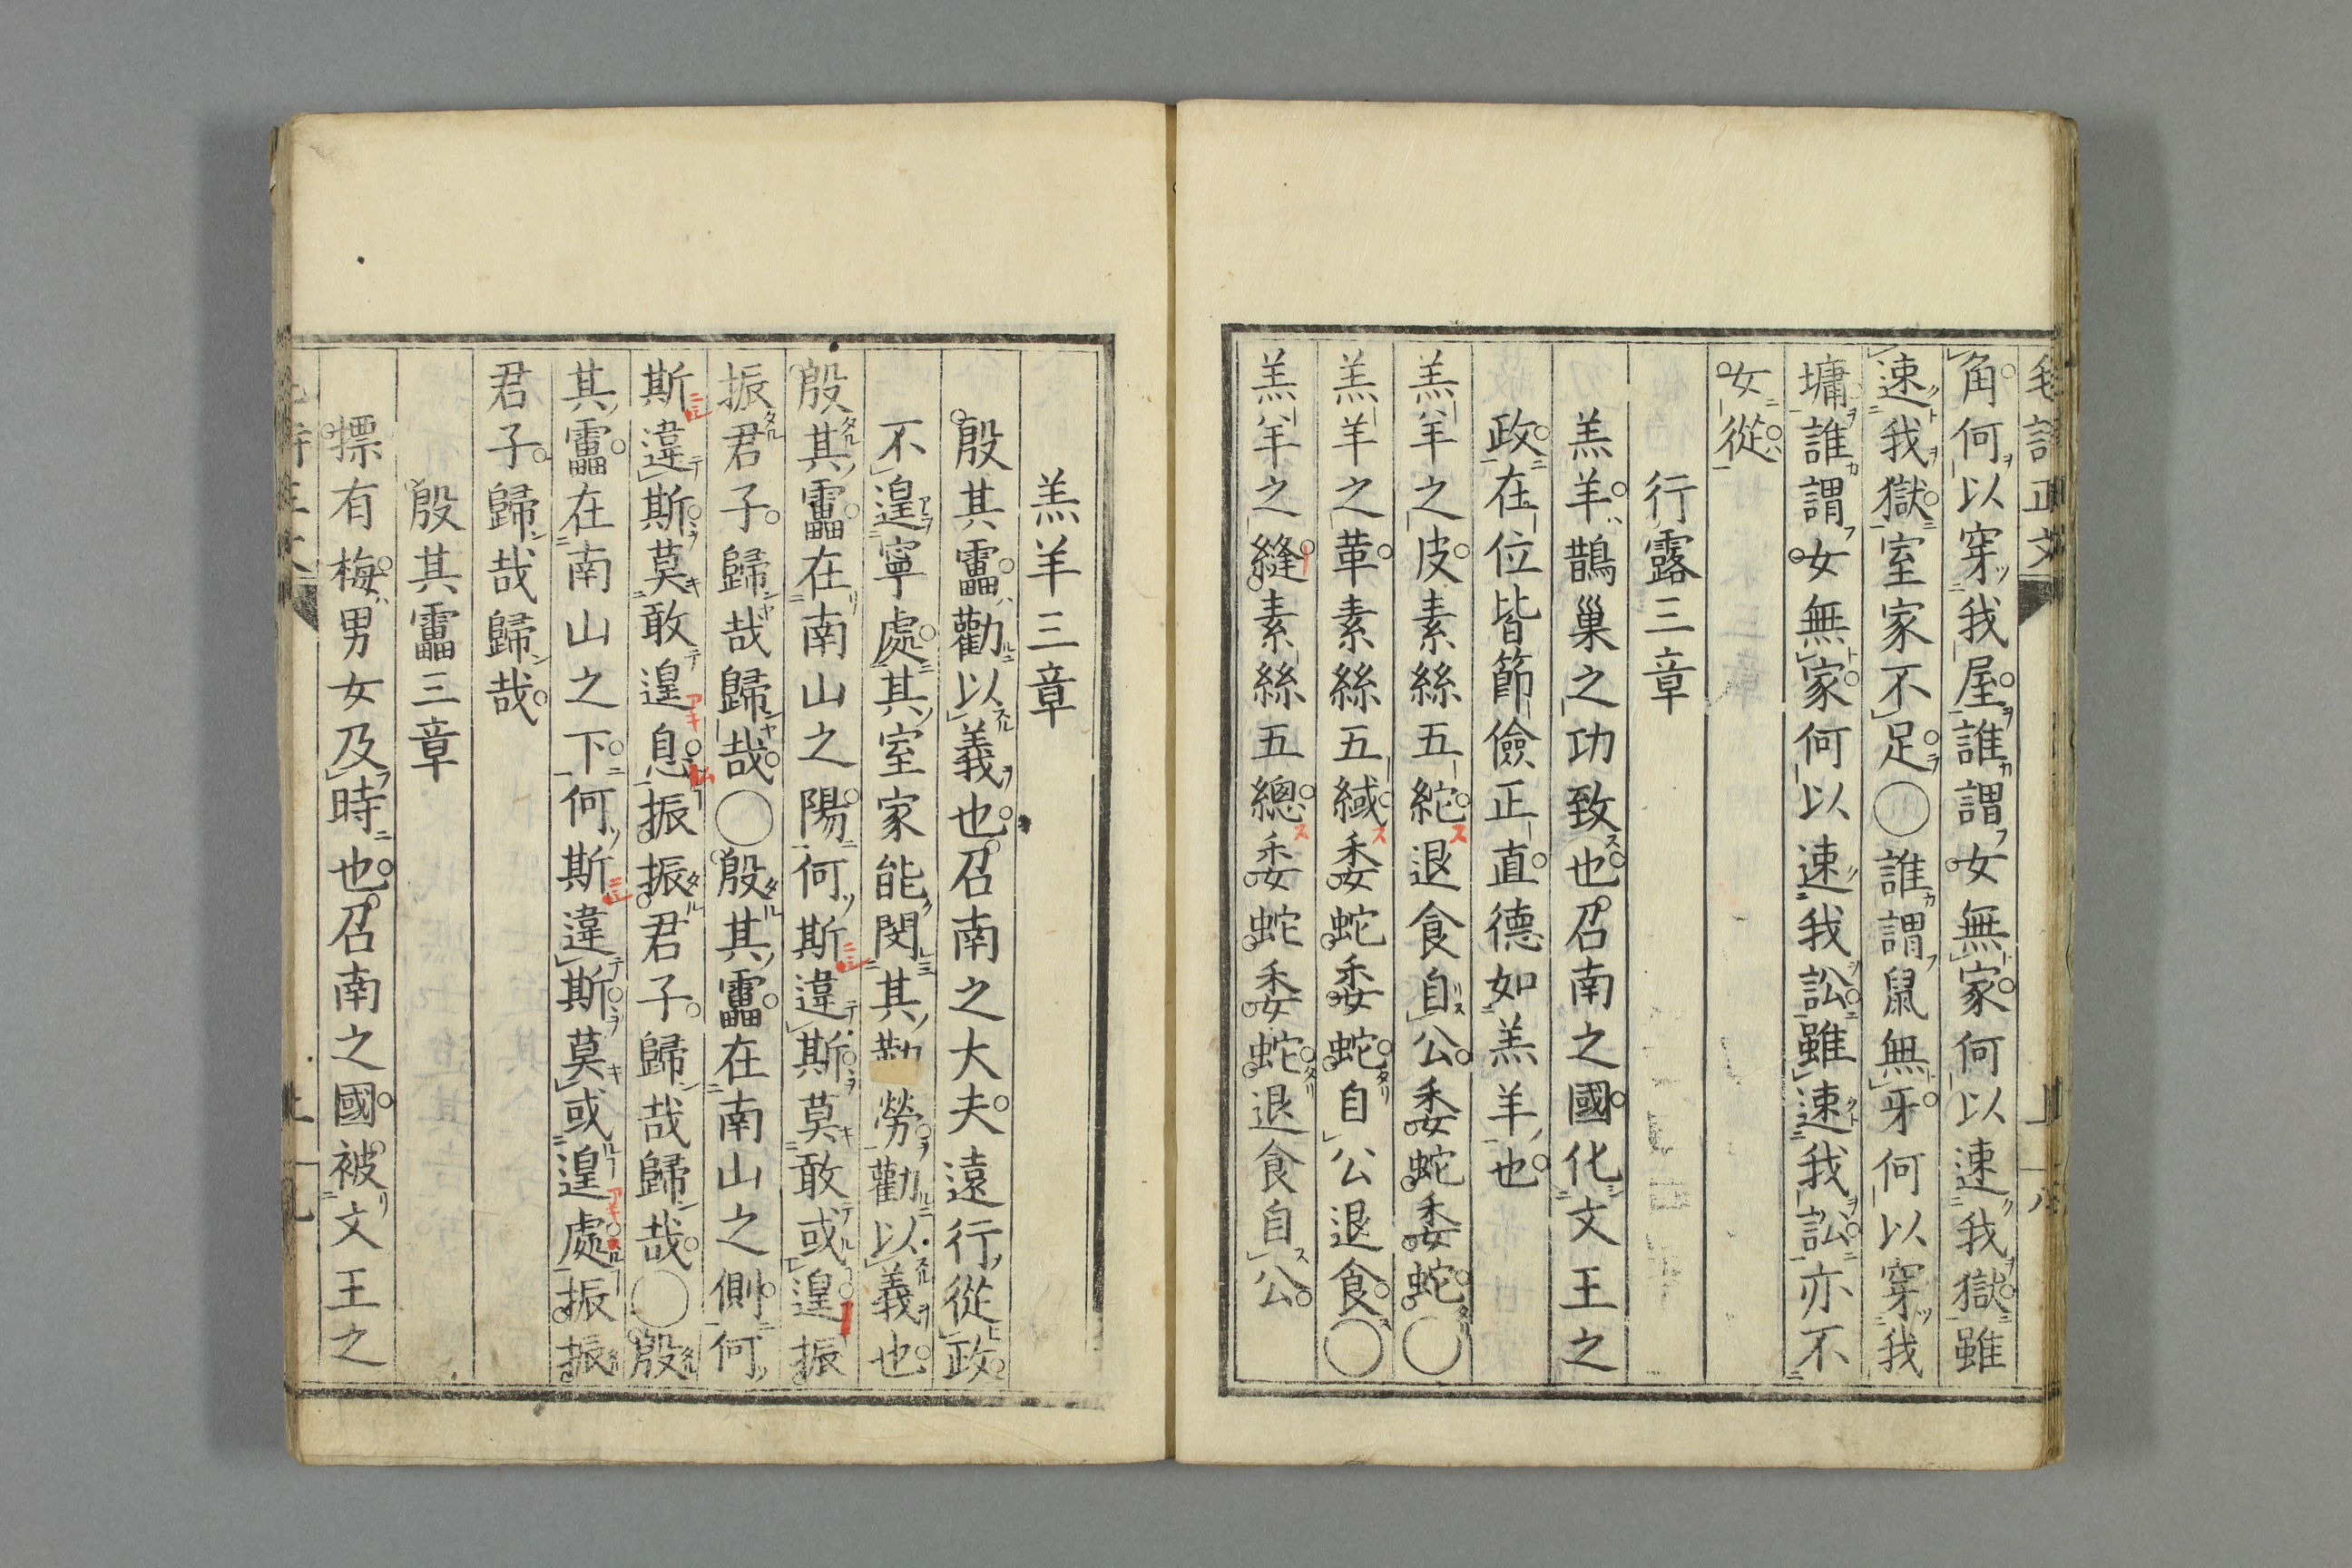 毛詩正文
角何以穿我屋誰謂女無家何以速我獄雖
速我獄室家不足○誰謂鼠無牙何以穿我
墉誰謂女無家何以速我訟雖速我訟亦不
女從
行露三章
羔羊鵲巢之功致也召南之國化文王之
政在位皆節儉正直德如羔羊也
羔羊之皮素絲五紽退食自公委蛇委蛇○
羔羊之革素絲五緎委蛇委蛇自公退食○
羔羊之縫素絲五總委蛇委蛇退食自公
羔羊三章
殷其靁勸以義也召南之大夫遠行從政
不遑寧處其室家能閔其勤勞勸以義也
殷其靁在南山之陽何斯違斯莫敢或遑振
振君子歸哉歸哉○殷其靁在南山之側何
斯違斯莫敢遑息振振君子歸哉歸哉○殷
其靁在南山之下何斯違斯莫或遑處振振
君子歸哉歸哉
殷其靁三章
摽有梅男女及時也召南之國被文王之